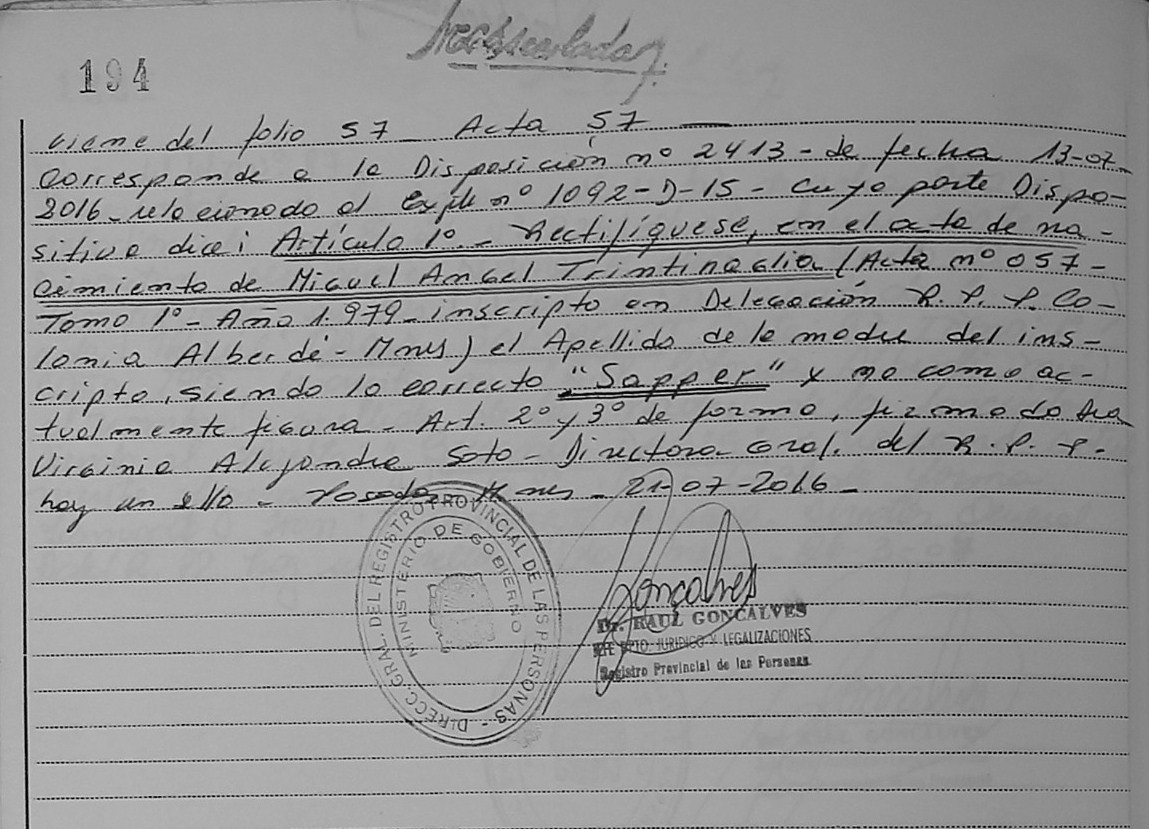 194
viene del folio 57 - Acta 57
Corresponde a la Disposición nº 2413 - de fecha 13-07-
2016 - relacionado al Expte nº 1092-D-15 - cuya parte Dispo-
sitiva dice: Artículo 1º - Rectifíquese, en el acta de na-
cimiento de Miguel Angel Trintinaglia (Acta nº 057 -
Tomo 1º - Año 1.979 - inscripto en Delegación R. P. P. Co-
lonia Alberdi - Mnes) el Apellido de la madre del ins-
cripto, siendo lo correcto "Sapper" y no como ac-
tualmente figura - Art. 2º y 3º de forma, firmado Dra
Virginia Alejandra Soto - Directora Gral. del R. P. P.
hay un sello - Posadas, Mnes - 21-07-2016 -
DIRECC. GRAL. DEL REGISTRO PROVINCIAL DE LAS PERSONAS -
MINISTERIO DE GOBIERNO
Gonçalves
Dr. RAUL GONCALVES
JEFE DPTO. JURIDICO Y LEGALIZACIONES
Registro Provincial de las Personas